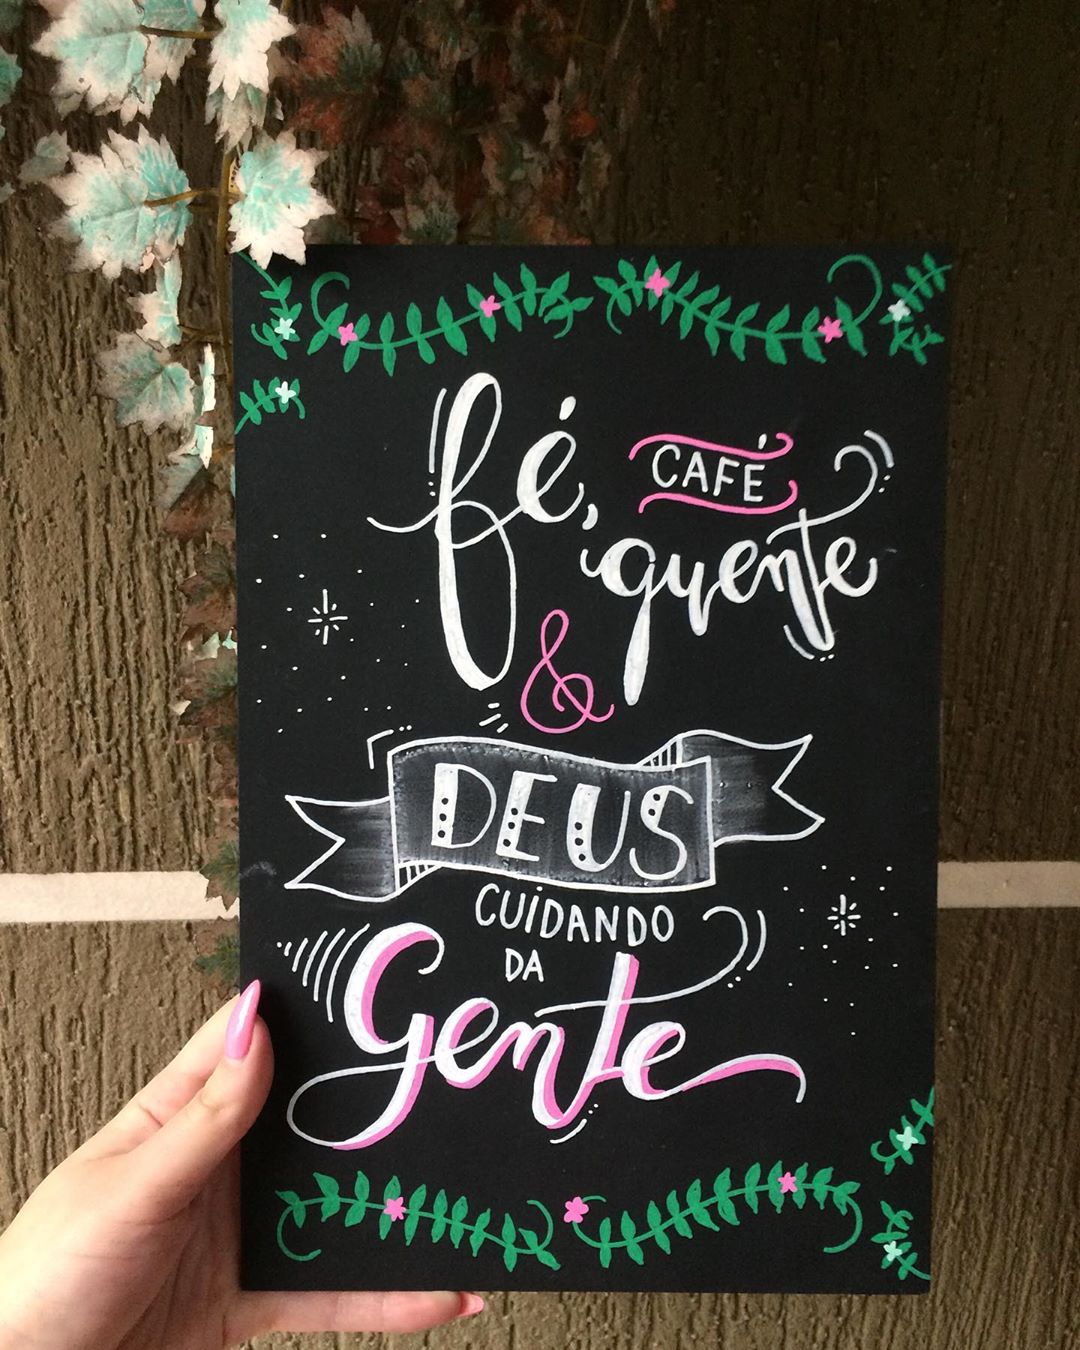 fé, CAFÉ
quente
&
DEUS
CUIDANDO
DA
Gente